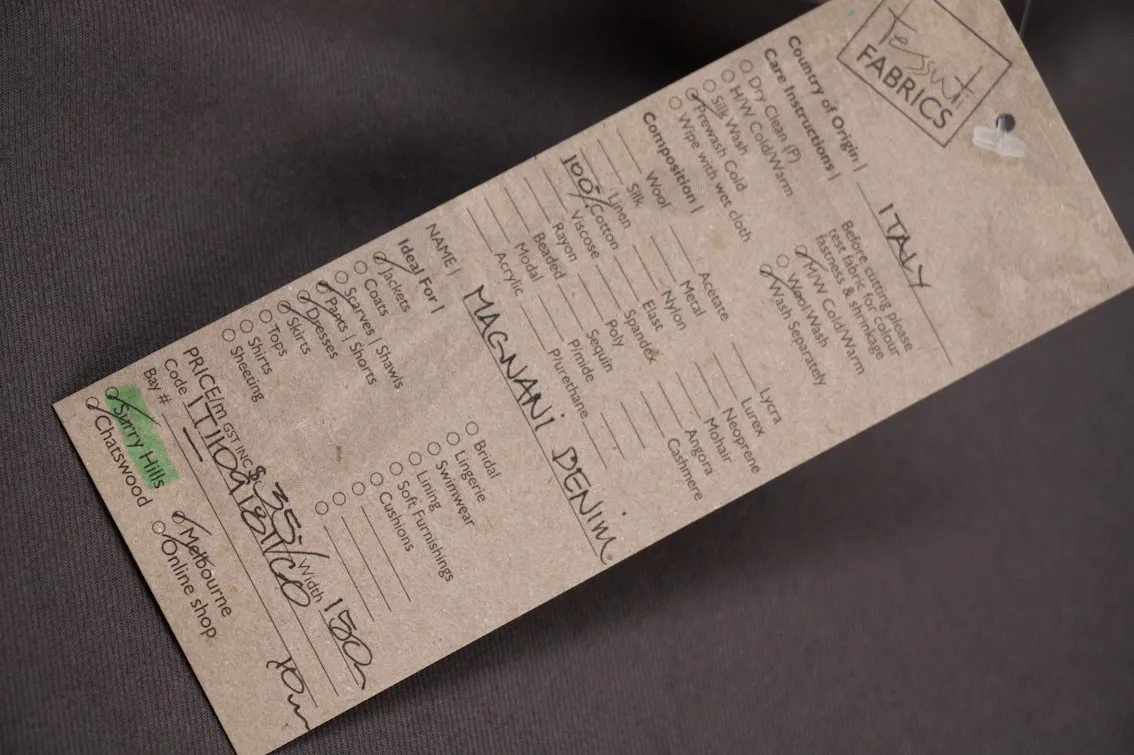 Tessuti
FABRICS
Country of Origin | ITALY
Care Instructions |
Before cutting please
test fabric for colour
fastness & shrinkage
Dry Clean (P)
H/W Cold/Warm
Silk Wash
Prewash Cold
Wipe with wet cloth
M/W Cold/Warm
Wool Wash
Wash Separately
Composition |
Wool
Silk
Linen
100% Cotton
Viscose
Rayon
Beaded
Modal
Acrylic
Acetate
Metal
Nylon
Elast
Spandex
Poly
Sequin
P/mide
P/urethane
Lycra
Lurex
Neoprene
Mohair
Angora
Cashmere
NAME | MAGNANI DENIM
Ideal For |
Jackets
Coats
Scarves | Shawls
Pants | Shorts
Dresses
Skirts
Tops
Shirts
Sheeting
Bridal
Lingerie
Swimwear
Lining
Soft Furnishings
Cushions
PRICE/m GST INC $35/ Width 150
Code
Bay #
10m
Surry Hills
Chatswood
Melbourne
Online shop